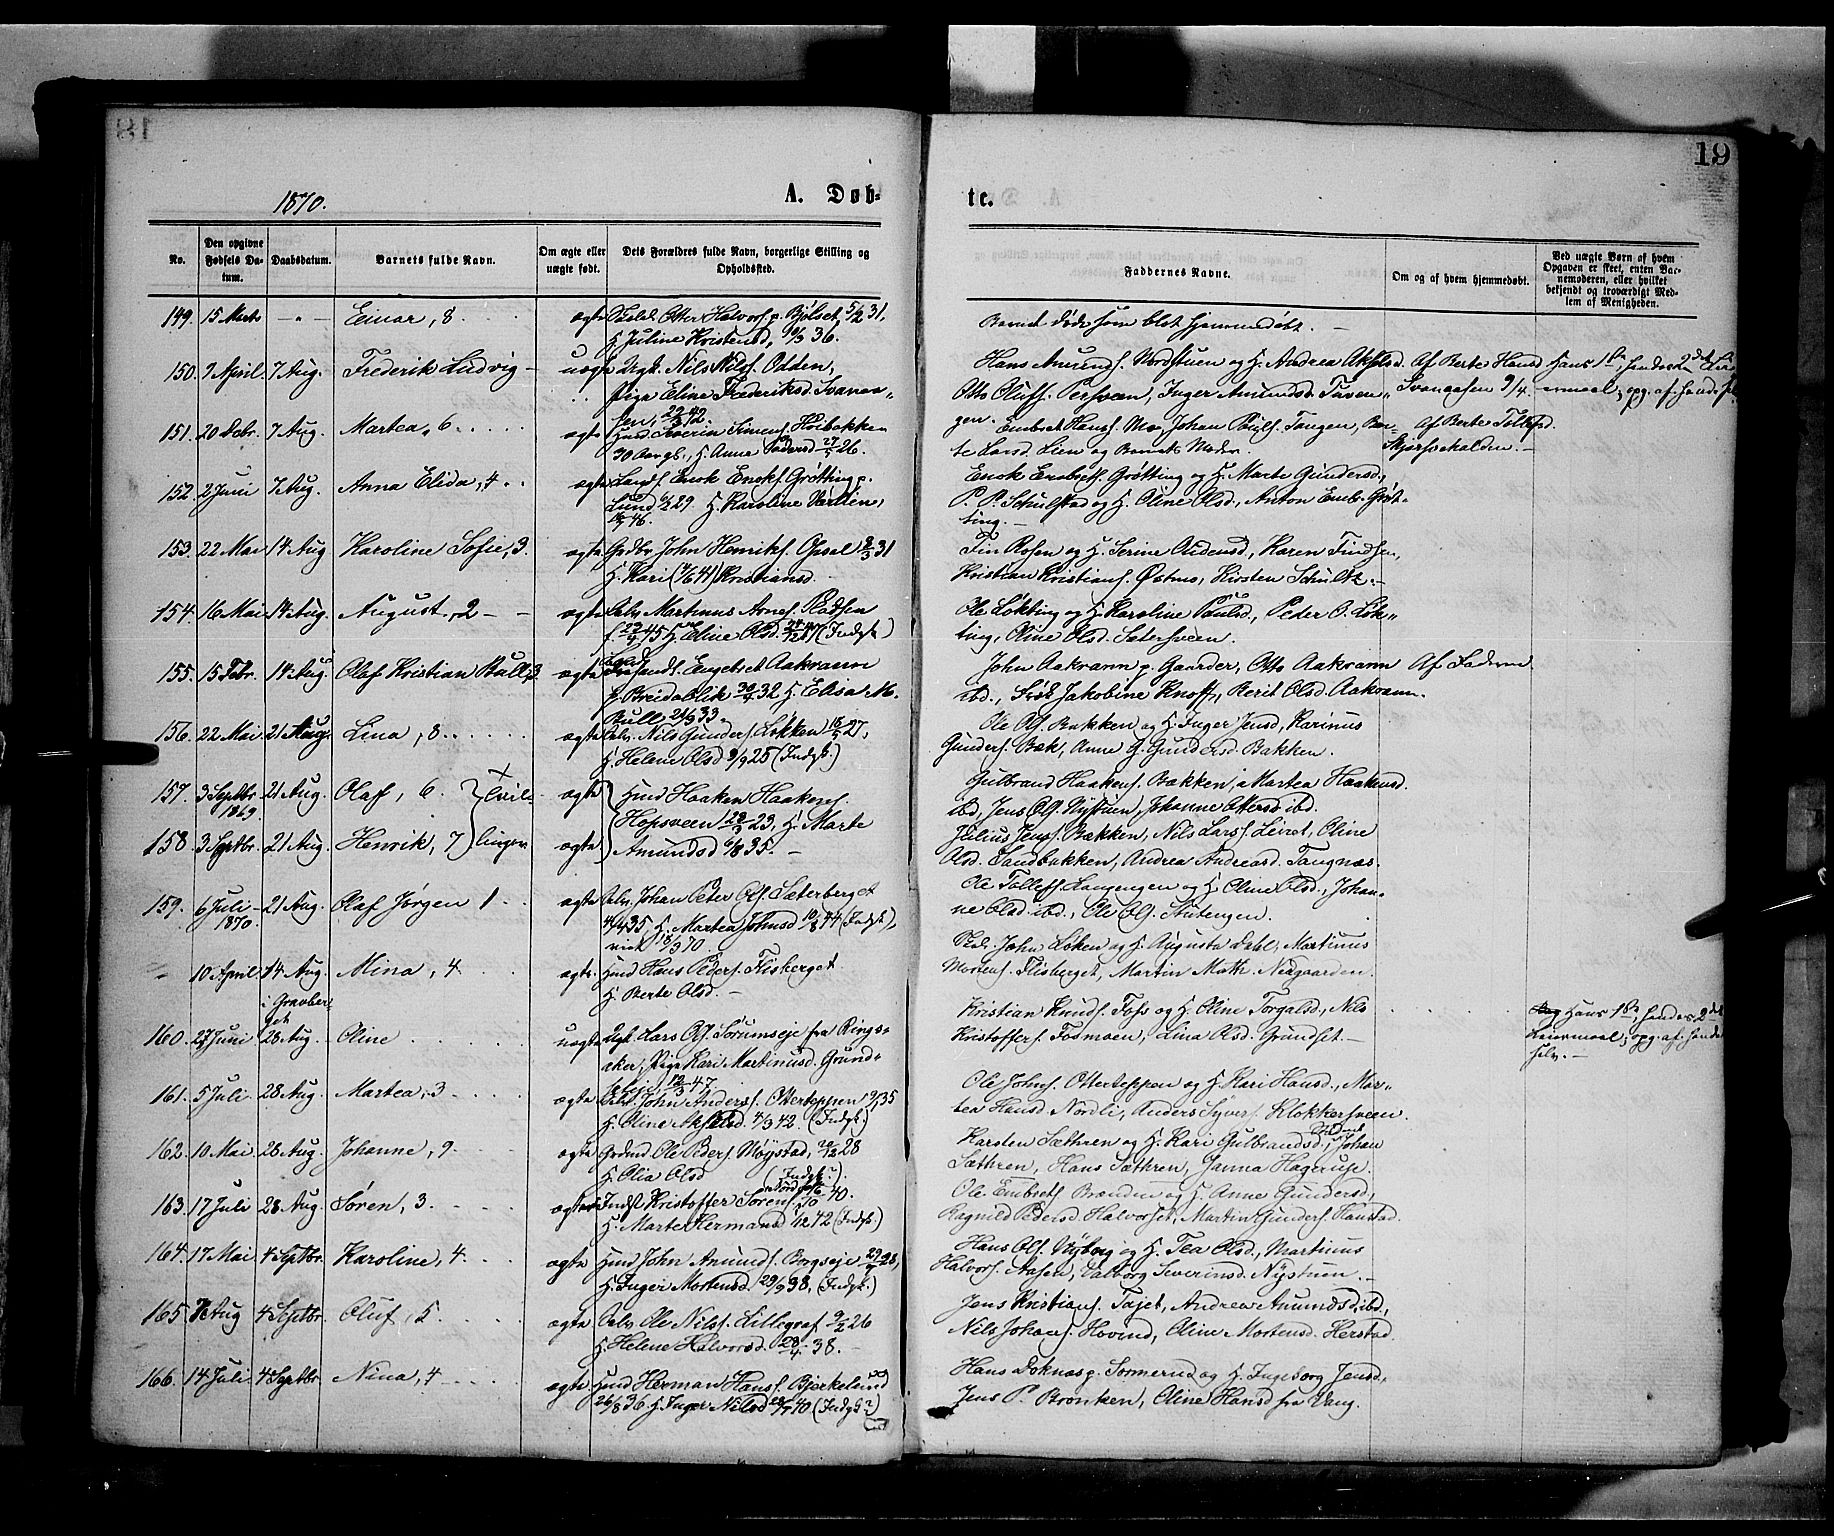 19
1870.
A. Døb-
te.
No.
Den opgivne Fødsels Datum.
Daabsdatum.
Barnets fulde Navn.
Om ægte eller uægte født.
Dets Forældres fulde Navn, borgerlige Stilling og Opholdssted.
Faddernes Navne.
Om og af hvem hjemmedøbt.
Ved uægte Børn af hvem Opgaven er skeet, enten Barnemoderen, eller hvilket bekjendt og troværdigt Medlem af Menigheden.
149. 15 Marts - " - Einar, 8 ægte Otter Halvors. p. Bjølset 5/2 31,
H. Juline Kristensd, 36.
Barnet døde som blot hjemmedøbt. —
150. 9 April. 7 Aug. Frederik Ludvig - uægte Ugk. Nils Nils. Odden,
Pige Eline Frederiksd. Svanaa-
sen, 42.
Hans Amunds. Nordstuen og H. Andrea
Otto Olufs. Persveen, Inger Amundsd. Tuven-
gen.
Af Berte Hansd
Svanaasen 9/4.
Hans 1ste, hendes 2det Leier-
maal, opg. af hende selv
151. 20 Debr. 7 Aug. Martea, 6 ægte Hmd Severin Simens. Høibakken
30 Aar gl., H. Anne Pedersd 26.
Embret Hans. Mo, Johan Pouls. Tangen, Ber-
te Larsd. Lien og Barnets Moder.
Af Berte Tollefsd.
152. 2 Juni 7 Aug. Anna Elida, 4 ægte Enok Enoks. Grøtting p.
Lund 29 H. Karoline
46.
Enok Enoks. Grøtting og H. Marte Gundersd.,
P. P. Schulstad og H. Oline Olsd., Anton Emb. Grøt-
ting. —
153. 22 Mai 14 Aug Karoline Sofie, 3. ægte Grdbr John Henriks. Opsal 31
H. Kari (41) Kristiansd.
Fin Rosen og H. Serine Audensd, Karen Findsen,
Kristian Kristians. Østmo, Kirsten Schultz. -
154. 16 Mai 14 Aug. August, 2 - - ægte Martinus Arnes. Pladsen
45 H. Eline Olsd. 47 (Indsk.)
Ole Løkting og H. Karoline Paulsd., Peder O. Løk-
ting, Oline Olsd. Setersveen.
155. 15 Febr. 14 Aug Olaf Kristian Bull, 3. ægte Engebret Aakrann
p. Breidablik 32 H. Elisa M.
Bull 33.
John Aakrann p. Gaarder, Otto Aakrann
ibd., Frøk Jakobine Knoff, Berit Olsd. Aakrann.
Af Faderen
156. 22 Mai 21 Aug. Lina, 8. ægte Nils Gunders. Løkken 27,
H. Helene Olsd 9/9 25 (Indsk.)
Ole Ols. Bakken og H. Inger Jensd, Karinus
Gunders. Bæk, Anne G. Gundersd. Bakken.
157. 3 Septbr 1869 21 Aug. Olaf, 6. Tvil- ægte Hmd Haaken Haakens.
Hopsveen 23, H. Marte
Gulbrand Haakens. Bakken, Martea Haakensd.
ibd, Jens Ols. Nystuen, Johanne Ottersd ibd.
158. 3 Septbr. 21 Aug. Henrik, 7 linger ægte Amundsd 6/8 35. —
Julius Jens. Bækken, Nils Lars. Leiret, Oline
Olsd. Sandbakken, Andrea Andreasd. Tangnæs.
159. 6 Juli 1870. 21 Aug. Olaf Jørgen 1 ægte Johan Peter Ols. Sæterberget
35, H. Martea Johnsd 44 (Indsk.),
viet 70.
Ole Tollefs. Langengen og H. Oline Olsd., Johan-
ne Olsd ibd., Ole Ols. Stutengen.
- 10 April 14 Aug. i Gravber-
get Mina, 4. ægte. Hmd Hans Peders. Flisberget
H. Berte Olsd. —
Pedr. John Løken og H. Augusta Dahl, Martinus
Mortens. Flisberget, Martin Math. Nergaarden.
160. 27 Juni 28 Aug. Oline uægte Ugk Lars Ols. Sørumseie fra Rings-
aker, Pige Kari Martinusd. Grund-
seteie 47.
Kristian Knuds. Foss og H. Oline Torgalsd, Nils
Kristoffers. Fosmoen, Lina Olsd. Grundset. —
Hans 1ste, hendes 2det
Leiermaal, opg. af hende
selv. —
161. 5 Juli. 28 Aug. Martea, 3 ægte John Anders. Otterteppen 35
H. Oline 42. (Indsk.)
Ole Johns. Otterteppen og H. Kari Hansd., Mar-
tea Hansd Nordli, Anders Syvers. Klokkersveen.
162. 10 Mai 28 Aug. Johanne, 9. ægte Grdmd Ole Peders. Møystad, 28
H. Olia Olsd (Indsk?).
Karsten Sæthren og H. Kari Gulbrandsd., Student Johan
Sæthren, Hans Sæthren, Janna Hagerup.
163. 17 Juli 28 Aug. Søren, 3. ægte Indst Kristoffer Sørens. 40.
H. Marte Hermansd 42 (Indsk.)
Ole Embrets Brænden og H. Anne Gundersd,
Ragnild Pedersd. Halvorset, Martin Gunders. Hanstad.
164. 17 Mai 4 Septbr. Karoline, 4. ægte Hmd John Amunds. Borgseie 28,
H. Inger Mortensd. 29/9 38, (Indsk.)
Hans Ols. Nyberg og H. Tea Olsd, Martinus
Halvors. Aasen, Valborg Severinsd. Nystuen. —
165. 7 Aug 4 Septbr. Oluf, 5. ægte Ole Nils. Lillegraf 26
H. Helene Halvorsd. 38. —
Jens Kristians. Tajet, Andrea Amundsd ibd.,
Nils Johans. Hovind, Oline Mortensd. Herstad.
166. 14 Juli. 4 Septbr Nina, 4 ægte Hmd Herman Hans. Bjerkelund
36 H. Inger Nilsd 40 (Indsk?)
Hans Doknæs p. Sormerud og H. Ingeborg Jensd.,
Jens P. Brønken, Oline Hansd fra Vang.